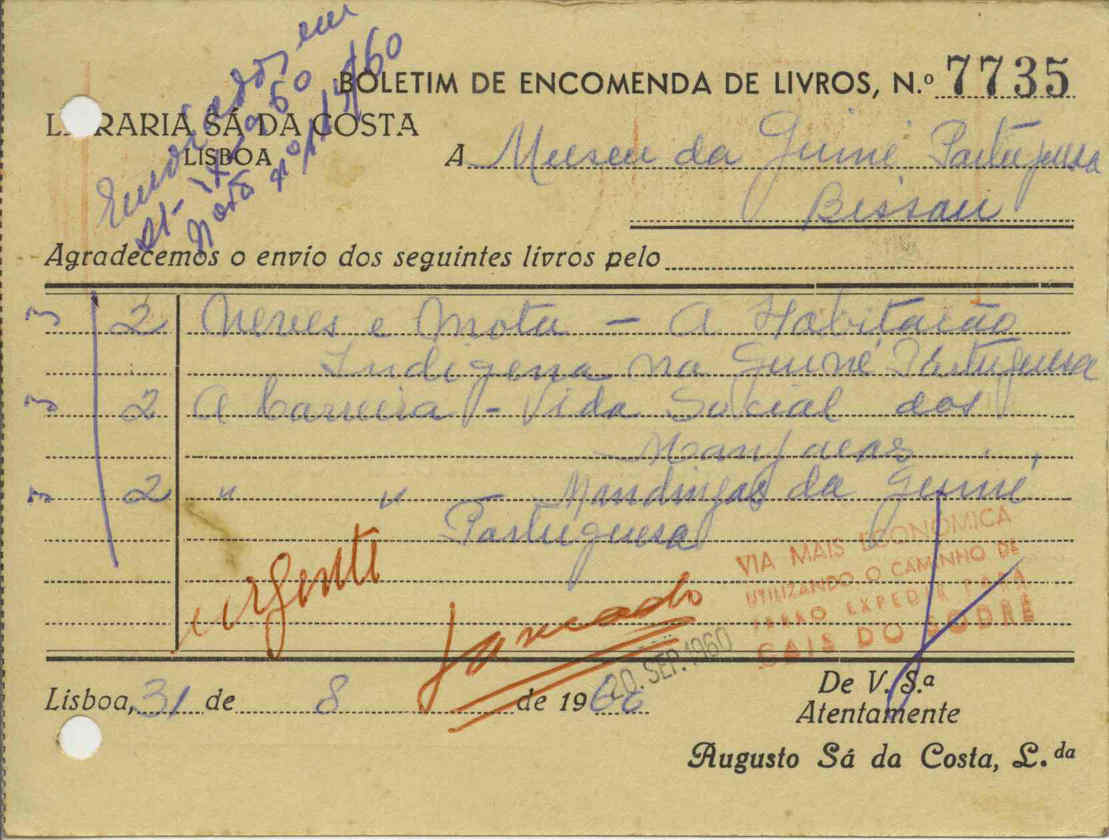 Enviados em
21-IX-960
Nota nº 114/60
BOLETIM DE ENCOMENDA DE LIVROS, N.º 7735
LIVRARIA SÁ DA COSTA
LISBOA
A Museu da Guiné Portuguesa
Bissau
Agradecemos o envio dos seguintes livros pelo
3 2 Neves e Mota - A Habitação
Indigena na Guiné Portuguesa
3 2 A Carreira - Vida Social dos
Manjacas
3 2 " " - Mandingas da Guiné
Portuguesa
urgente
VIA MAIS ECONOMICA
UTILIZANDO O CAMINHO DE
FERRO EXPEDIR PARA
CAIS DO SODRÉ
20. SEP. 1960
Lisboa, 31 de 8 de 1960
De V. S.ª
Atentamente
Augusto Sá da Costa, L.da